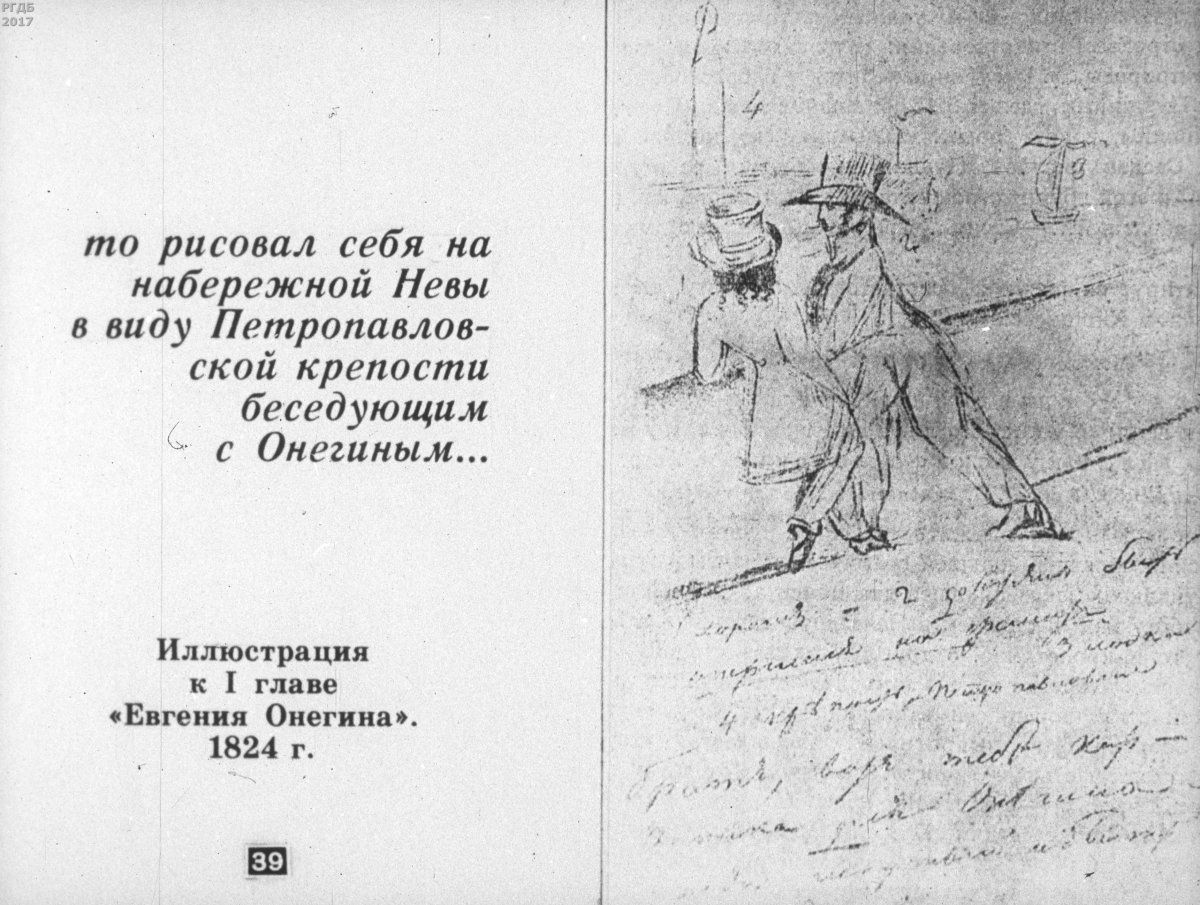 РГДБ
2017
то рисовал себя на
набережной Невы
в виду Петропавлов-
ской крепости
беседующим
с Онегиным...
Иллюстрация
к I главе
«Евгения Онегина».
1824 г.
39
4
3
2
хорош = 2 должен быть
опершися на гранит
3 лодка
4 крѣпость Петропавловская
Братъ, вотъ тебѣ кар-
тинка для Онѣгина